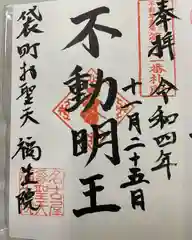 奉拝
令和四年
十一月二十五日
不動明王
袋町お聖天
福生院